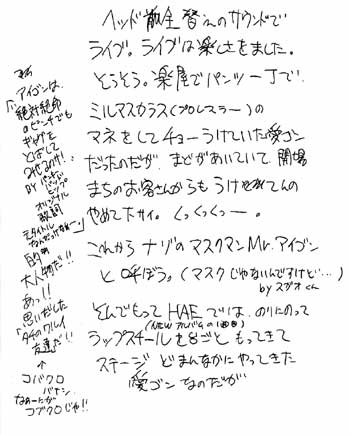 ヘッド散全替えのサウンドで
ライブ。ライブは楽しさをました。
とうとう。楽屋でパンツ一丁で、
ミルマスカラス(プロレスラー)の
マネをしてチョーうけていた愛ゴン
だったのだが、まどがあいていて 開場
まちのお客さんからも うけ てんの
やめて下サイ。くっくっくっー。
これから ナゾのマスクマンMr.アイゴン
と呼ぼう。(マスクじゃないんですけど…)
by スガオくん
とんでもって HAEでは、のりにのって
(NEW アルバムの1曲目)
ラップスチールを8ごと もってきて
ステージ どまんなかにやってきた
愛ゴン なのだが
アイゴンは、
「絶対絶命
のピンチでも
ギャグを
とばして
みせるわけ!
BY
ヒップ
オリジナル
歌詞
タイトル
なんだっけなぁー」
的
大人物だ!!
あっ!!
思いだした
「タチのワルイ
友達」だ!!
↑
コバクロ
バヤシ
なぁーにが
コブクロじゃ!!